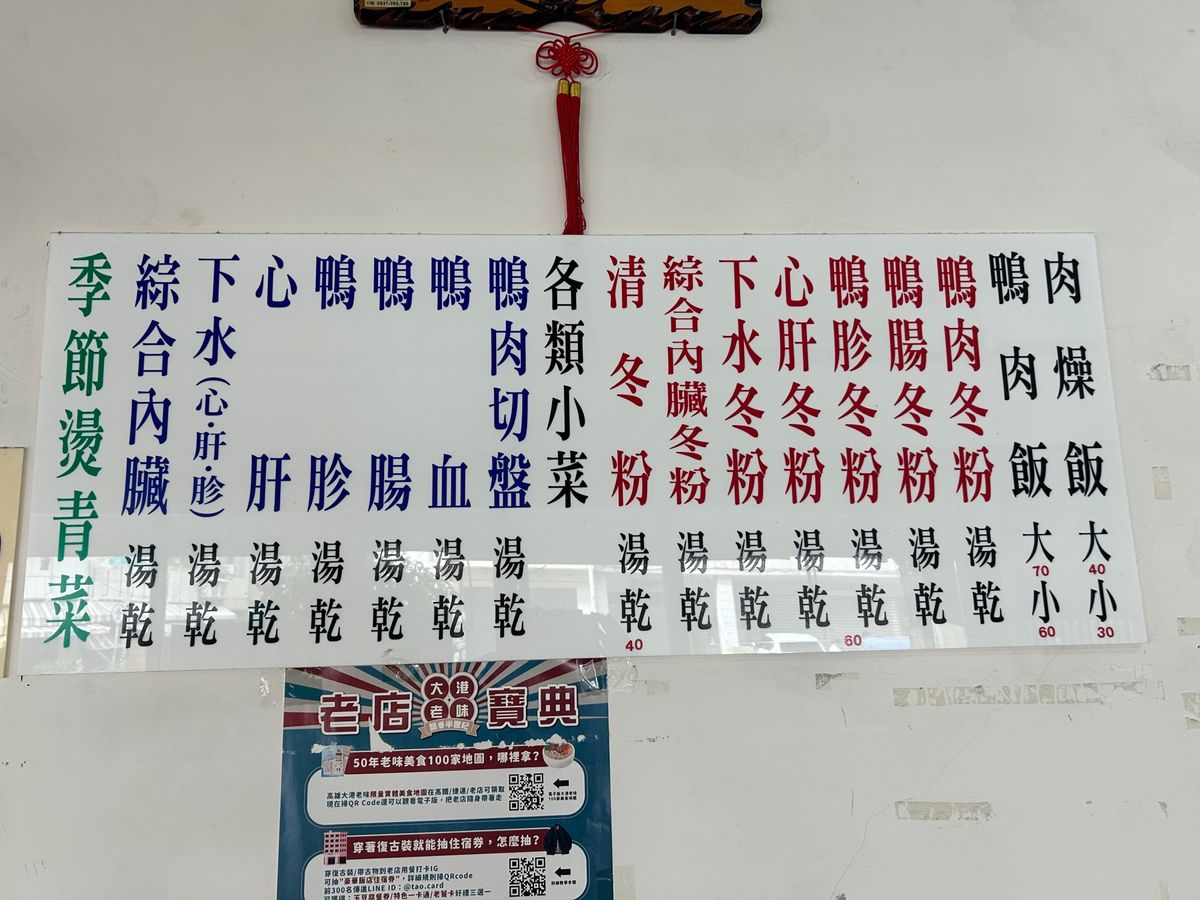 訂製:0937-395-789
肉燥飯 大40 小30
鴨肉飯 大70 小60
鴨肉冬粉 湯 乾
鴨腸冬粉 湯 乾
鴨胗冬粉 湯 乾 60
心肝冬粉 湯 乾
下水冬粉 湯 乾
綜合內臟冬粉 湯 乾
清冬粉 湯 乾 40
各類小菜
鴨肉切盤 湯 乾
鴨血 湯 乾
鴨腸 湯 乾
鴨胗 湯 乾
心肝 湯 乾
下水(心·肝·胗) 湯 乾
綜合內臟 湯 乾
季節燙青菜
老店 大港老味 寶典
飄香半世紀
50年老味美食100家地圖,哪裡拿?
高雄大港老味限量實體美食地圖在高鐵/捷運/老店可領取
現在掃QR Code還可以觀看電子版,把老店隨身帶著走
電子版大港老味
100家美食地圖
穿著復古裝就能抽住宿券,怎麼抽?
穿復古裝/帶古物到老店用餐打卡IG
可抽"豪華飯店住宿券",詳細規則掃QRcode
前300名傳進LINE ID:@tao.card
可獲得:五豆腐餐券/特色一卡通/老饕卡好禮三選一